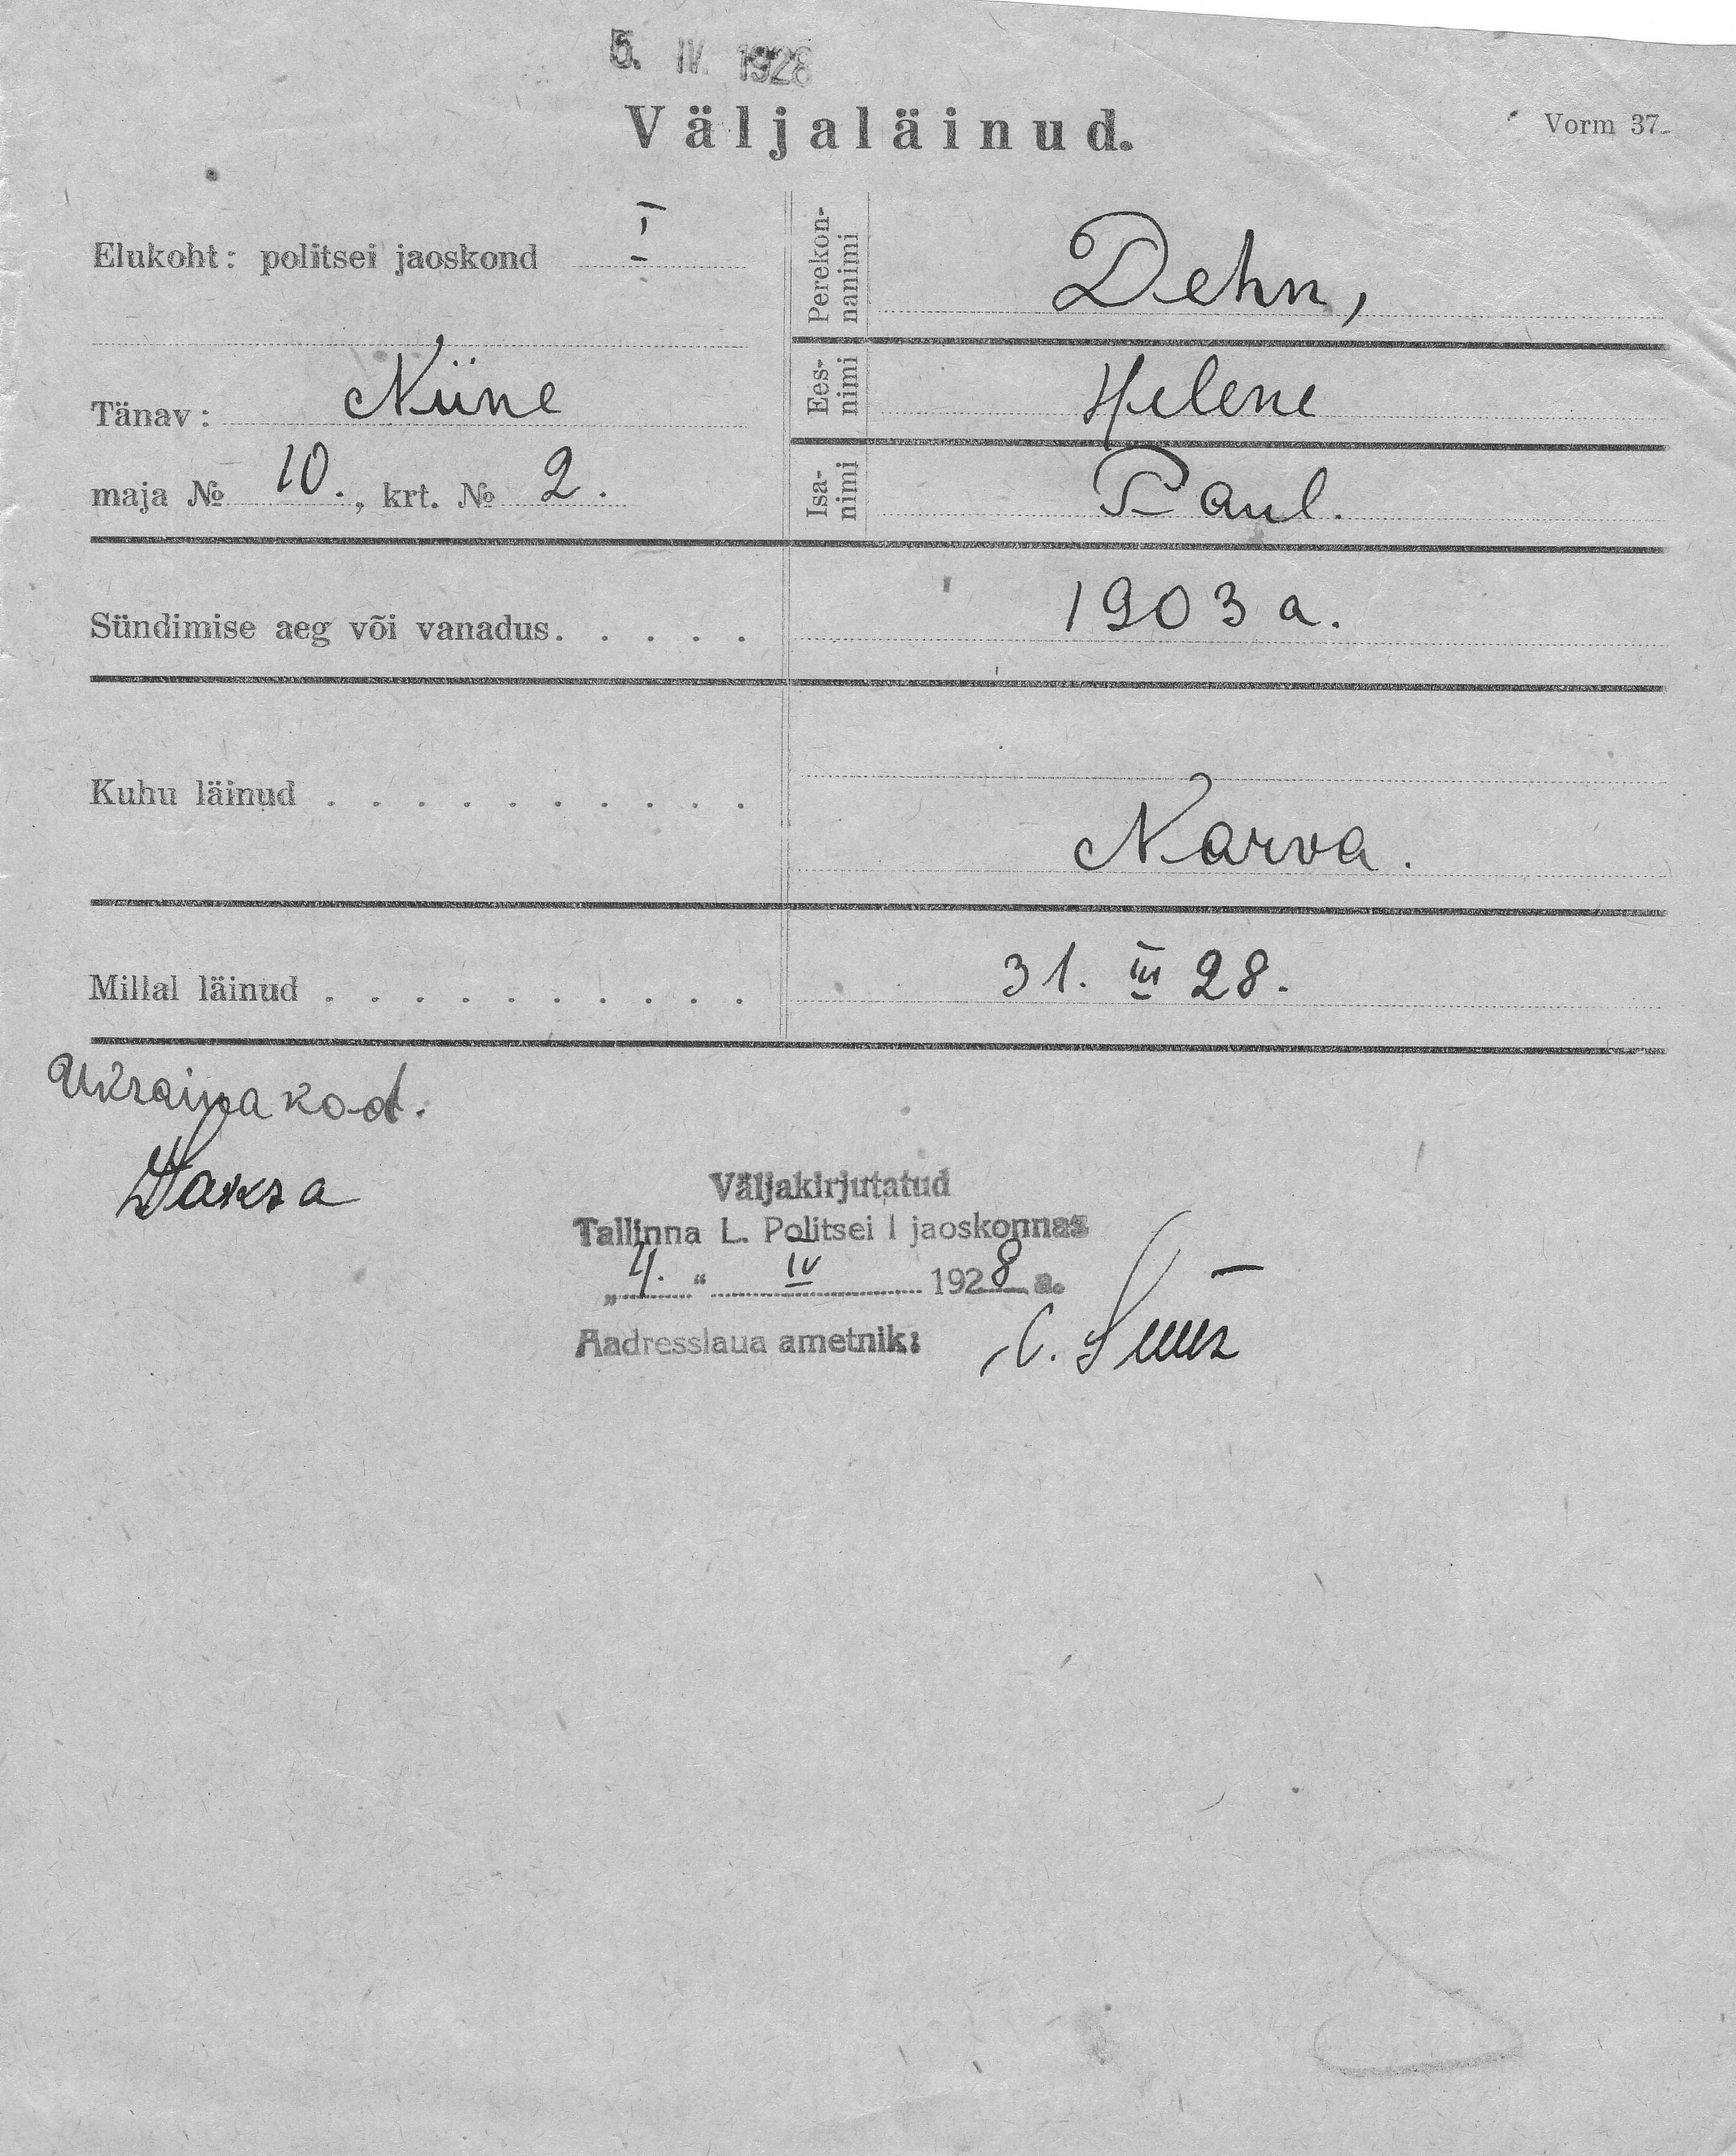 5. IV. 1928
Väljaläinud.
Vorm 37.
Elukoht: politsei jaoskond I
Tänav: Niine
maja № 10., krt. № 2.
Perekonnanimi Dehn,
Eesnimi Helene
Isanimi Paul.
Sündimise aeg või vanadus. . . . . 1903 a.
Kuhu läinud . . . . . . . . . . Narva.
Millal läinud . . . . . . . . . . 31. III 28.
Ukraina kod.
Väljakirjutatud
Tallinna L. Politsei I jaoskonnas
„4.“ IV 1928 a.
Aadresslaua ametnik: